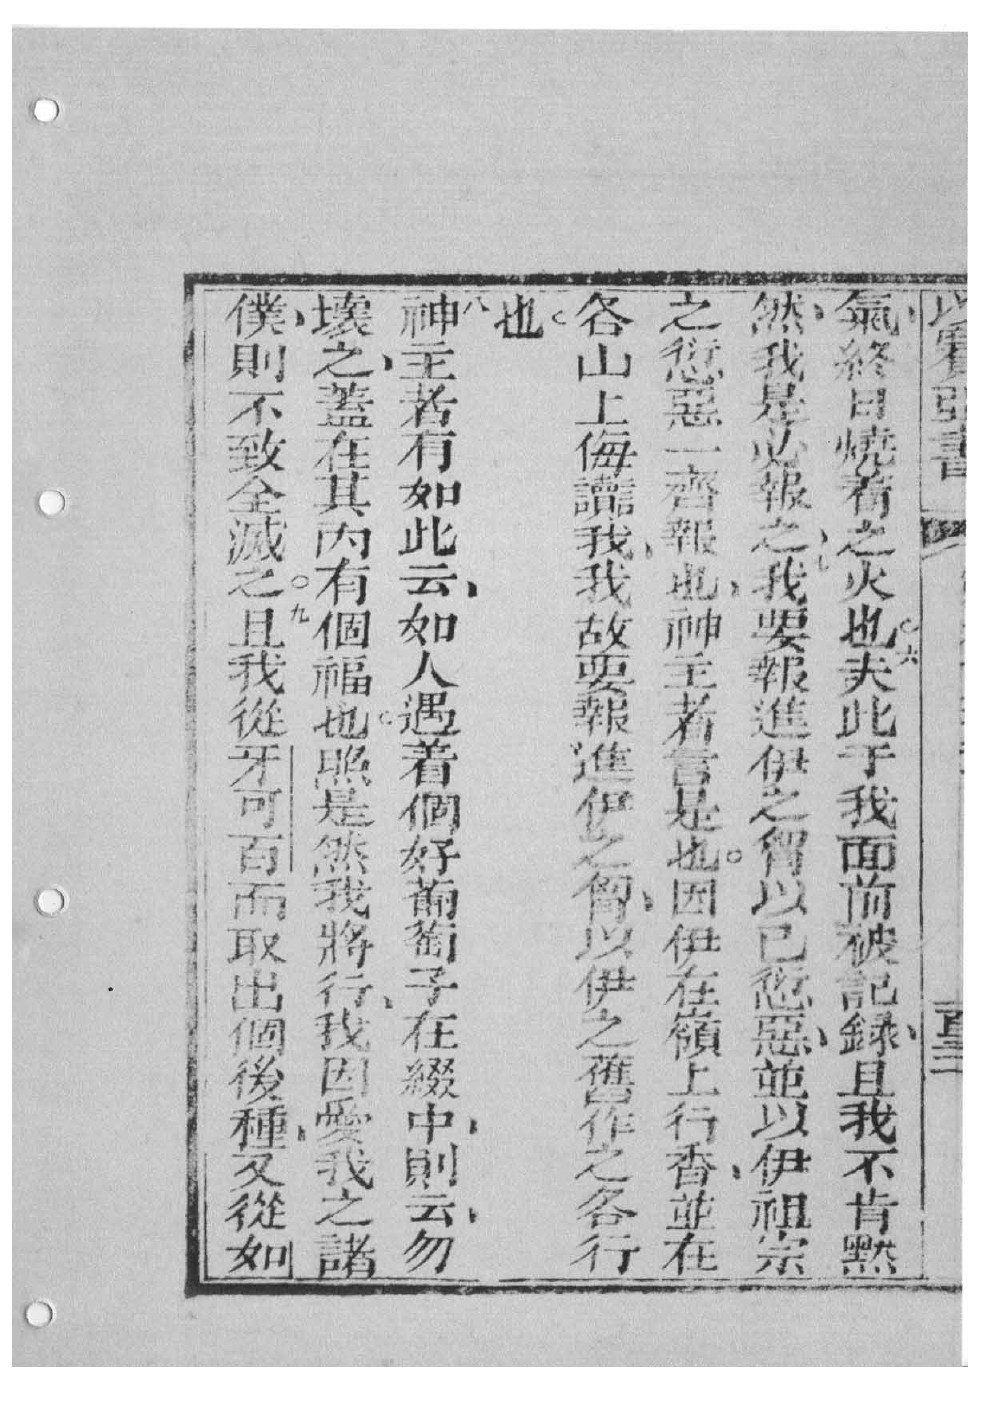 以賽亞書
氣、終日燒着之火也。六夫此于我面前被記錄、且我不肯黙
然、我是必報之、七我要報進伊之胷以己愆惡、並以伊祖宗
之愆惡一齊報也、神主者言是也。因伊在嶺上行香、並在
各山上侮讟我、我故要報進伊之胷、以伊之舊作之各行
也。
八神主者有如此云、如人遇着個好葡萄子在綴中、則云、勿
壞之、蓋在其內有個福也。照是然我將行、我因愛我之諸
僕、則不致全滅之。九且我從牙可百而取出個後種、又從如